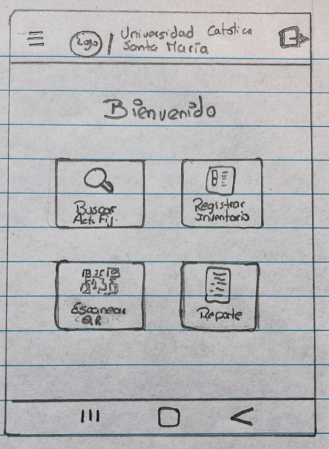 Logo
Universidad Católica
Santa María
Bienvenido
Buscar
Act. Fij.
Registrar
Inventario
Escanear
QR
Reporte